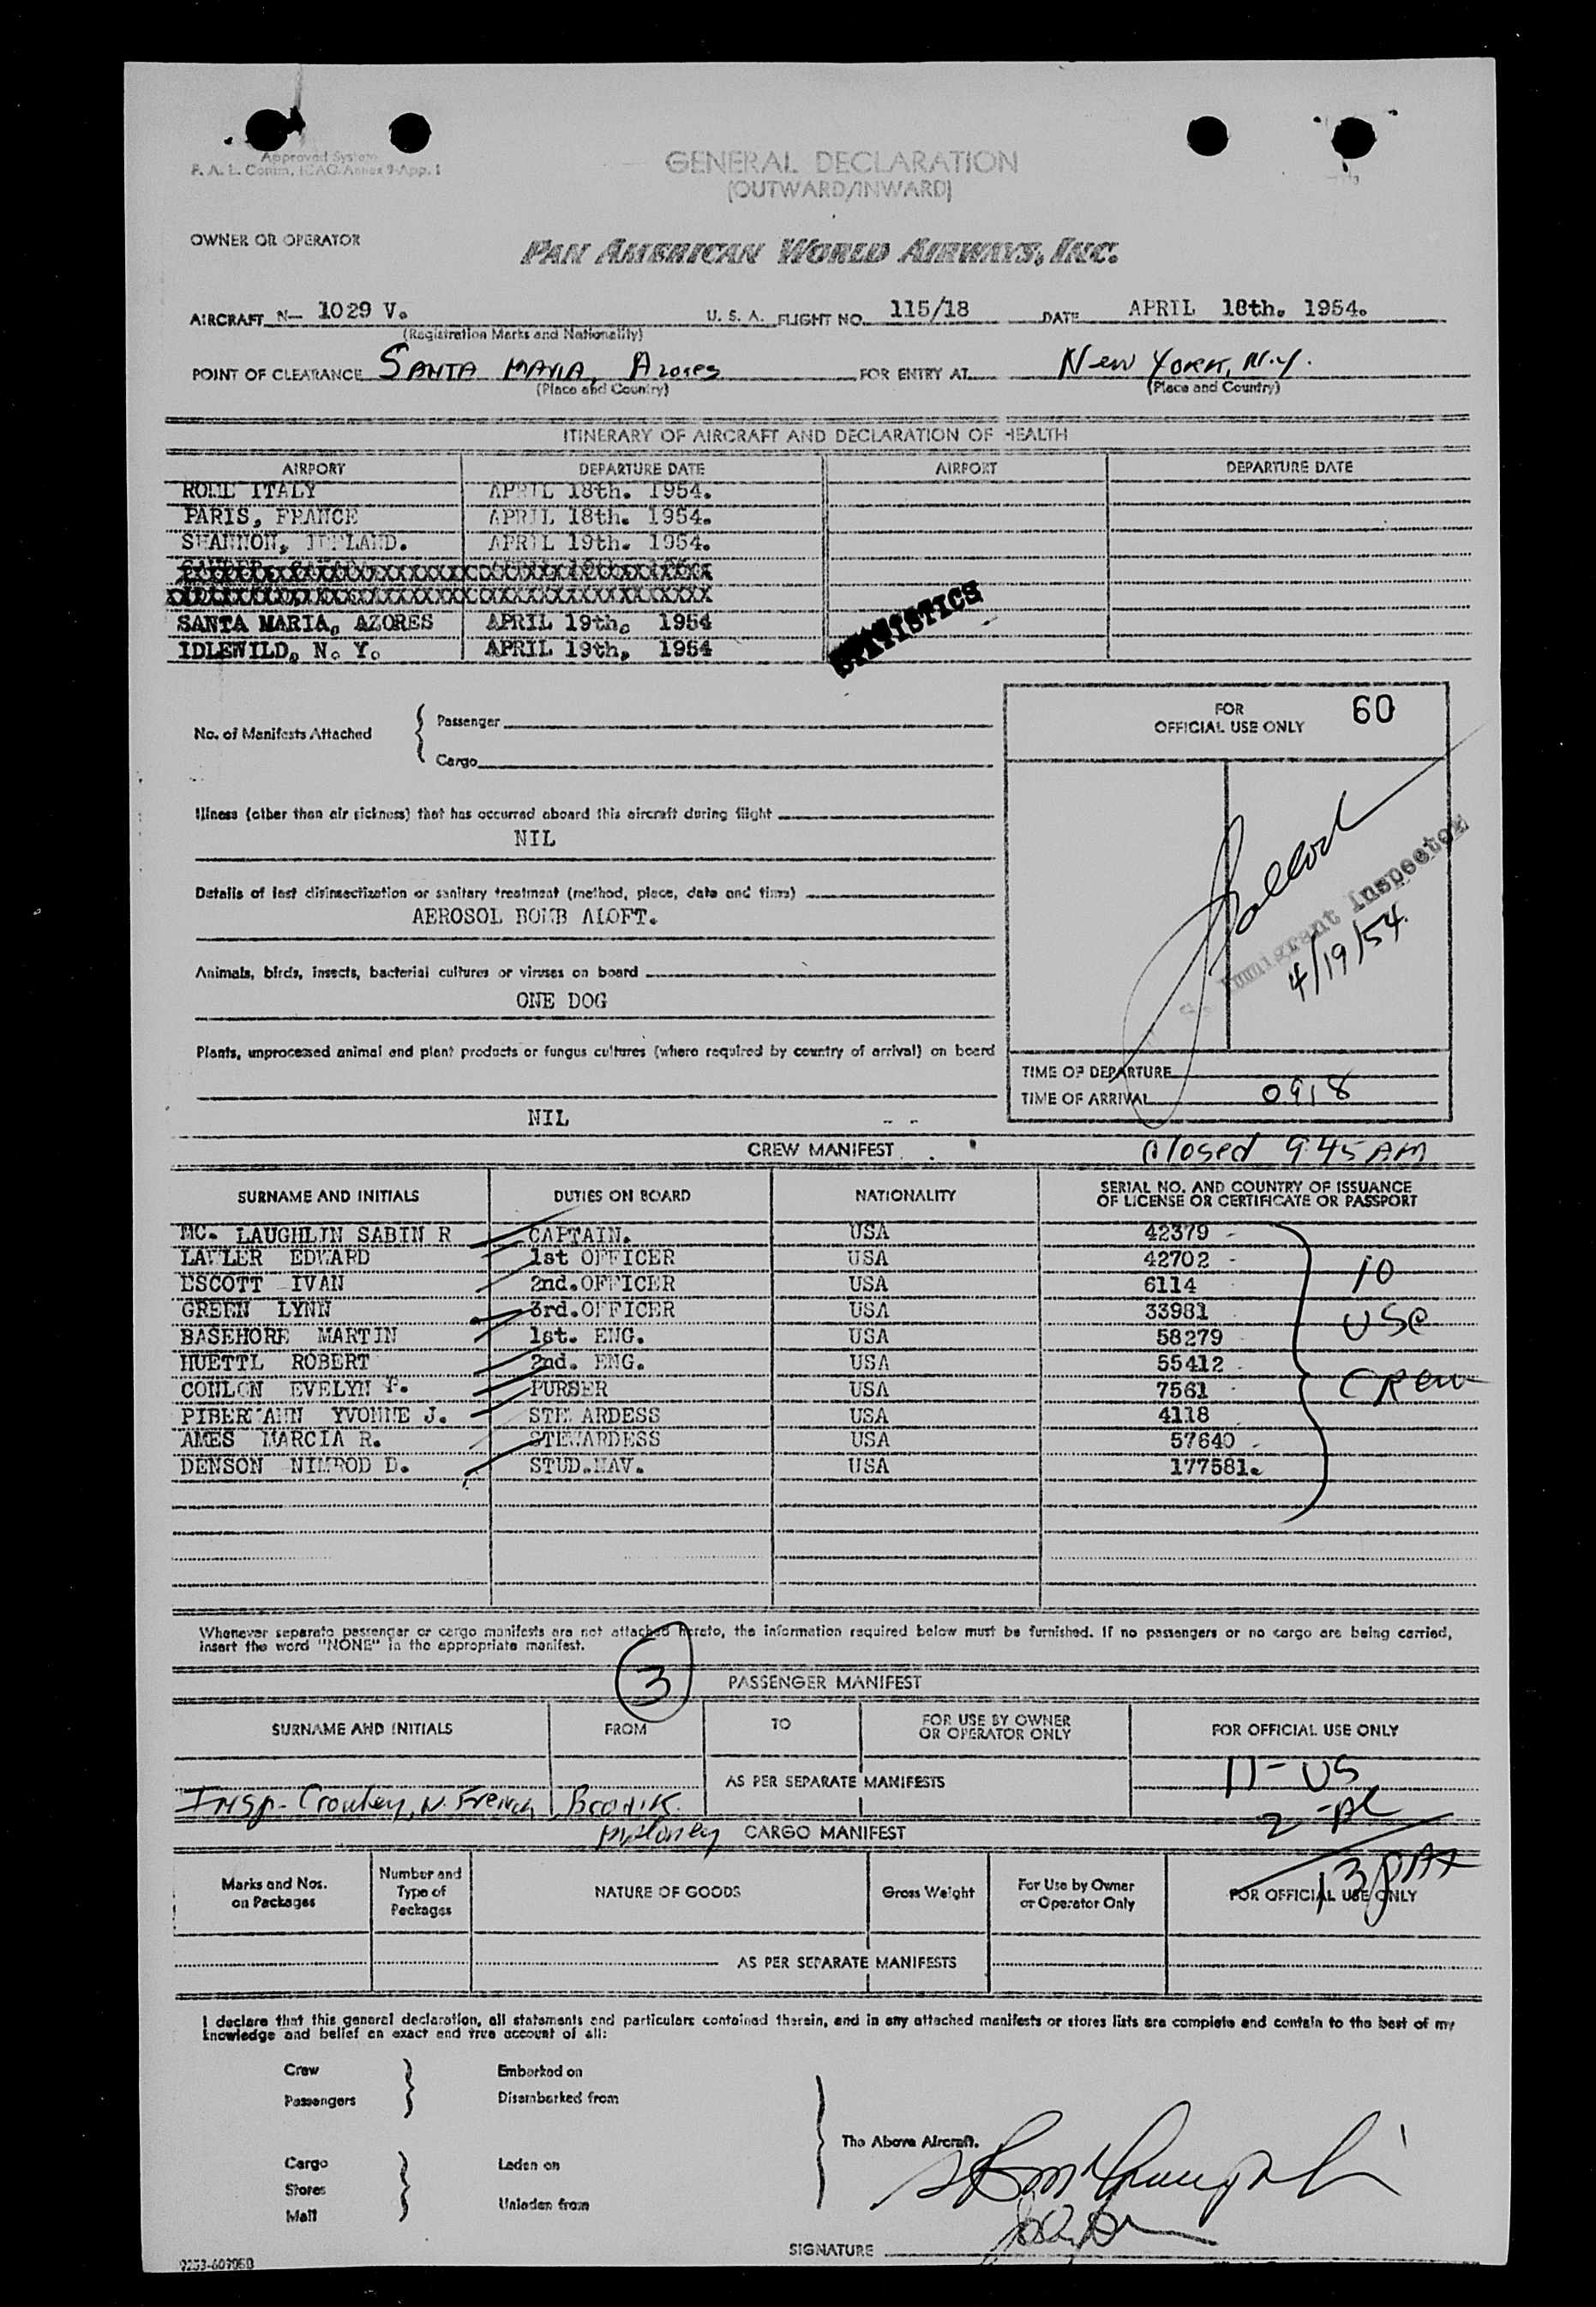 Approved System
F. A. L. Comm, ICAO Annex 9-App. 1
GENERAL DECLARATION
(OUTWARD/INWARD)
OWNER OR OPERATOR
PAN AMERICAN WORLD AIRWAYS, INC.
AIRCRAFT N- 1029 V. U. S. A. FLIGHT NO. 115/18 DATE APRIL 18th. 1954.
(Registration Marks and Nationality)
POINT OF CLEARANCE SANTA MARIA, Azores FOR ENTRY AT New YORK, N.Y.
(Place and Country) (Place and Country)
ITINERARY OF AIRCRAFT AND DECLARATION OF HEALTH
AIRPORT DEPARTURE DATE AIRPORT DEPARTURE DATE
ROME ITALY APRIL 18th. 1954.
PARIS, FRANCE APRIL 18th. 1954.
SHANNON, IRELAND. APRIL 19th. 1954.
SANTA MARIA, AZORES APRIL 19th, 1954
IDLEWILD, N. Y. APRIL 19th, 1954
STATISTICS
No. of Manifests Attached { Passenger
Cargo
FOR
OFFICIAL USE ONLY 60
Illness (other than air sickness) that has occurred aboard this aircraft during flight
NIL
Details of last disinsectization or sanitary treatment (method, place, date and time)
AEROSOL BOMB ALOFT.
Immigrant Inspector
4/19/54.
Animals, birds, insects, bacterial cultures or viruses on board
ONE DOG
Plants, unprocessed animal and plant products or fungus cultures (where required by country of arrival) on board
NIL
TIME OF DEPARTURE
TIME OF ARRIVAL 0918
CREW MANIFEST Closed 9 45 AM
SURNAME AND INITIALS DUTIES ON BOARD NATIONALITY SERIAL NO. AND COUNTRY OF ISSUANCE
OF LICENSE OR CERTIFICATE OR PASSPORT
MC. LAUGHLIN SABIN R CAPTAIN. USA 42379
LAWLER EDWARD 1st OFFICER USA 42702
ESCOTT IVAN 2nd.OFFICER USA 6114
GREEN LYNN 3rd.OFFICER USA 33981
BASEHORE MARTIN 1st. ENG. USA 58279
HUETTL ROBERT 2nd. ENG. USA 55412
CONLON EVELYN P. PURSER USA 7561
PIBERMANN YVONNE J. STEWARDESS USA 4118
AMES MARCIA R. STEWARDESS USA 57640
DENSON NIMROD D. STUD.NAV. USA 177581.
10
USC
CREW
Whenever separate passenger or cargo manifests are not attached hereto, the information required below must be furnished. If no passengers or no cargo are being carried,
insert the word "NONE" in the appropriate manifest.
3
PASSENGER MANIFEST
SURNAME AND INITIALS FROM TO FOR USE BY OWNER
OR OPERATOR ONLY FOR OFFICIAL USE ONLY
AS PER SEPARATE MANIFESTS 11-US
Insp- Crowley, N. French
CARGO MANIFEST
13 PAX
Marks and Nos.
on Packages Number and
Type of
Packages NATURE OF GOODS Gross Weight For Use by Owner
or Operator Only FOR OFFICIAL USE ONLY
AS PER SEPARATE MANIFESTS
I declare that this general declaration, all statements and particulars contained therein, and in any attached manifests or stores lists are complete and contain to the best of my
knowledge and belief an exact and true account of all:
Crew Embarked on
Passengers Disembarked from
The Above Aircraft.
Cargo Laden on
Stores
Mail Unladen from
SIGNATURE
9233-60705D